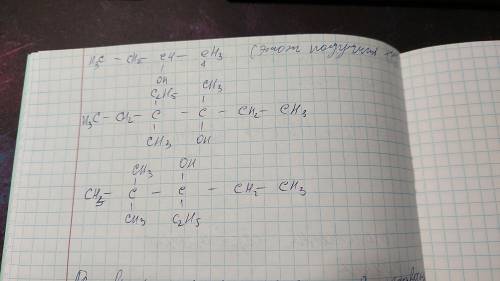 H3C - CH2 - CH - CH3 (этот получил
OH
C2H5 CH3
H3C - CH2 - C - C - CH2 - CH3
CH3 OH
CH3 OH
CH3 - C - C - CH2 - CH3
CH3 C2H5